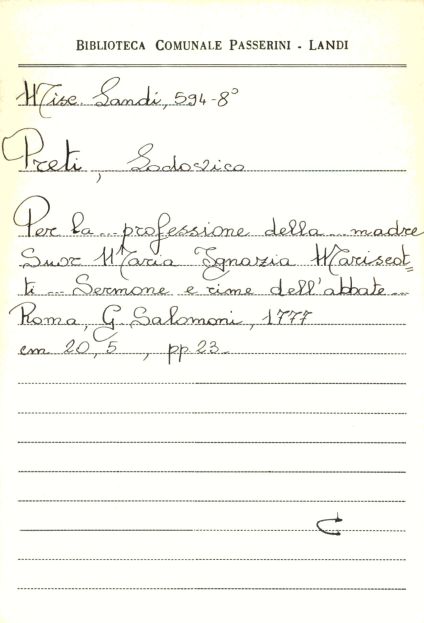 BIBLIOTECA COMUNALE PASSERINI - LANDI
Misc. Landi, 594-8°
Preti, Lodovico
Per la ... professione della ... madre
Suor Maria Ignazia Mariscot=
ti ... Sermone e rime dell'abbate ...
Roma, G. Salomoni, 1777
cm 20,5 , pp. 23.